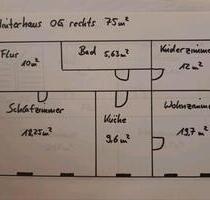 Hinterhaus OG rechts 75m²
Flur
10m²
Bad
5,63m²
Kinderzimmer
12m²
Schlafzimmer
18,25m²
Küche
9,6m²
Wohnzimmer
19,7m²